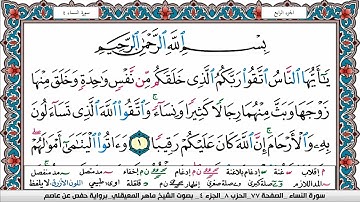 الجزء الرابع
سورة النساء ٤
بِسْمِ ٱللَّهِ ٱلرَّحْمَٰنِ ٱلرَّحِيمِ
يَٰٓأَيُّهَا ٱلنَّاسُ ٱتَّقُوا۟ رَبَّكُمُ ٱلَّذِى خَلَقَكُم مِّن نَّفْسٍ وَٰحِدَةٍ وَخَلَقَ مِنْهَا
زَوْجَهَا وَبَثَّ مِنْهُمَا رِجَالًا كَثِيرًا وَنِسَآءً ۚ وَٱتَّقُوا۟ ٱللَّهَ ٱلَّذِى تَسَآءَلُونَ
بِهِۦ وَٱلْأَرْحَامَ ۚ إِنَّ ٱللَّهَ كَانَ عَلَيْكُمْ رَقِيبًا ١ وَءَاتُوا۟ ٱلْيَتَٰمَىٰٓ أَمْوَٰلَهُمْ
سورة النساء _ الصفحة ٧٧_ الحزب ٨_ الجزء ٤_ بصوت الشيخ ماهر المعيقلي_ برواية حفص عن عاصم